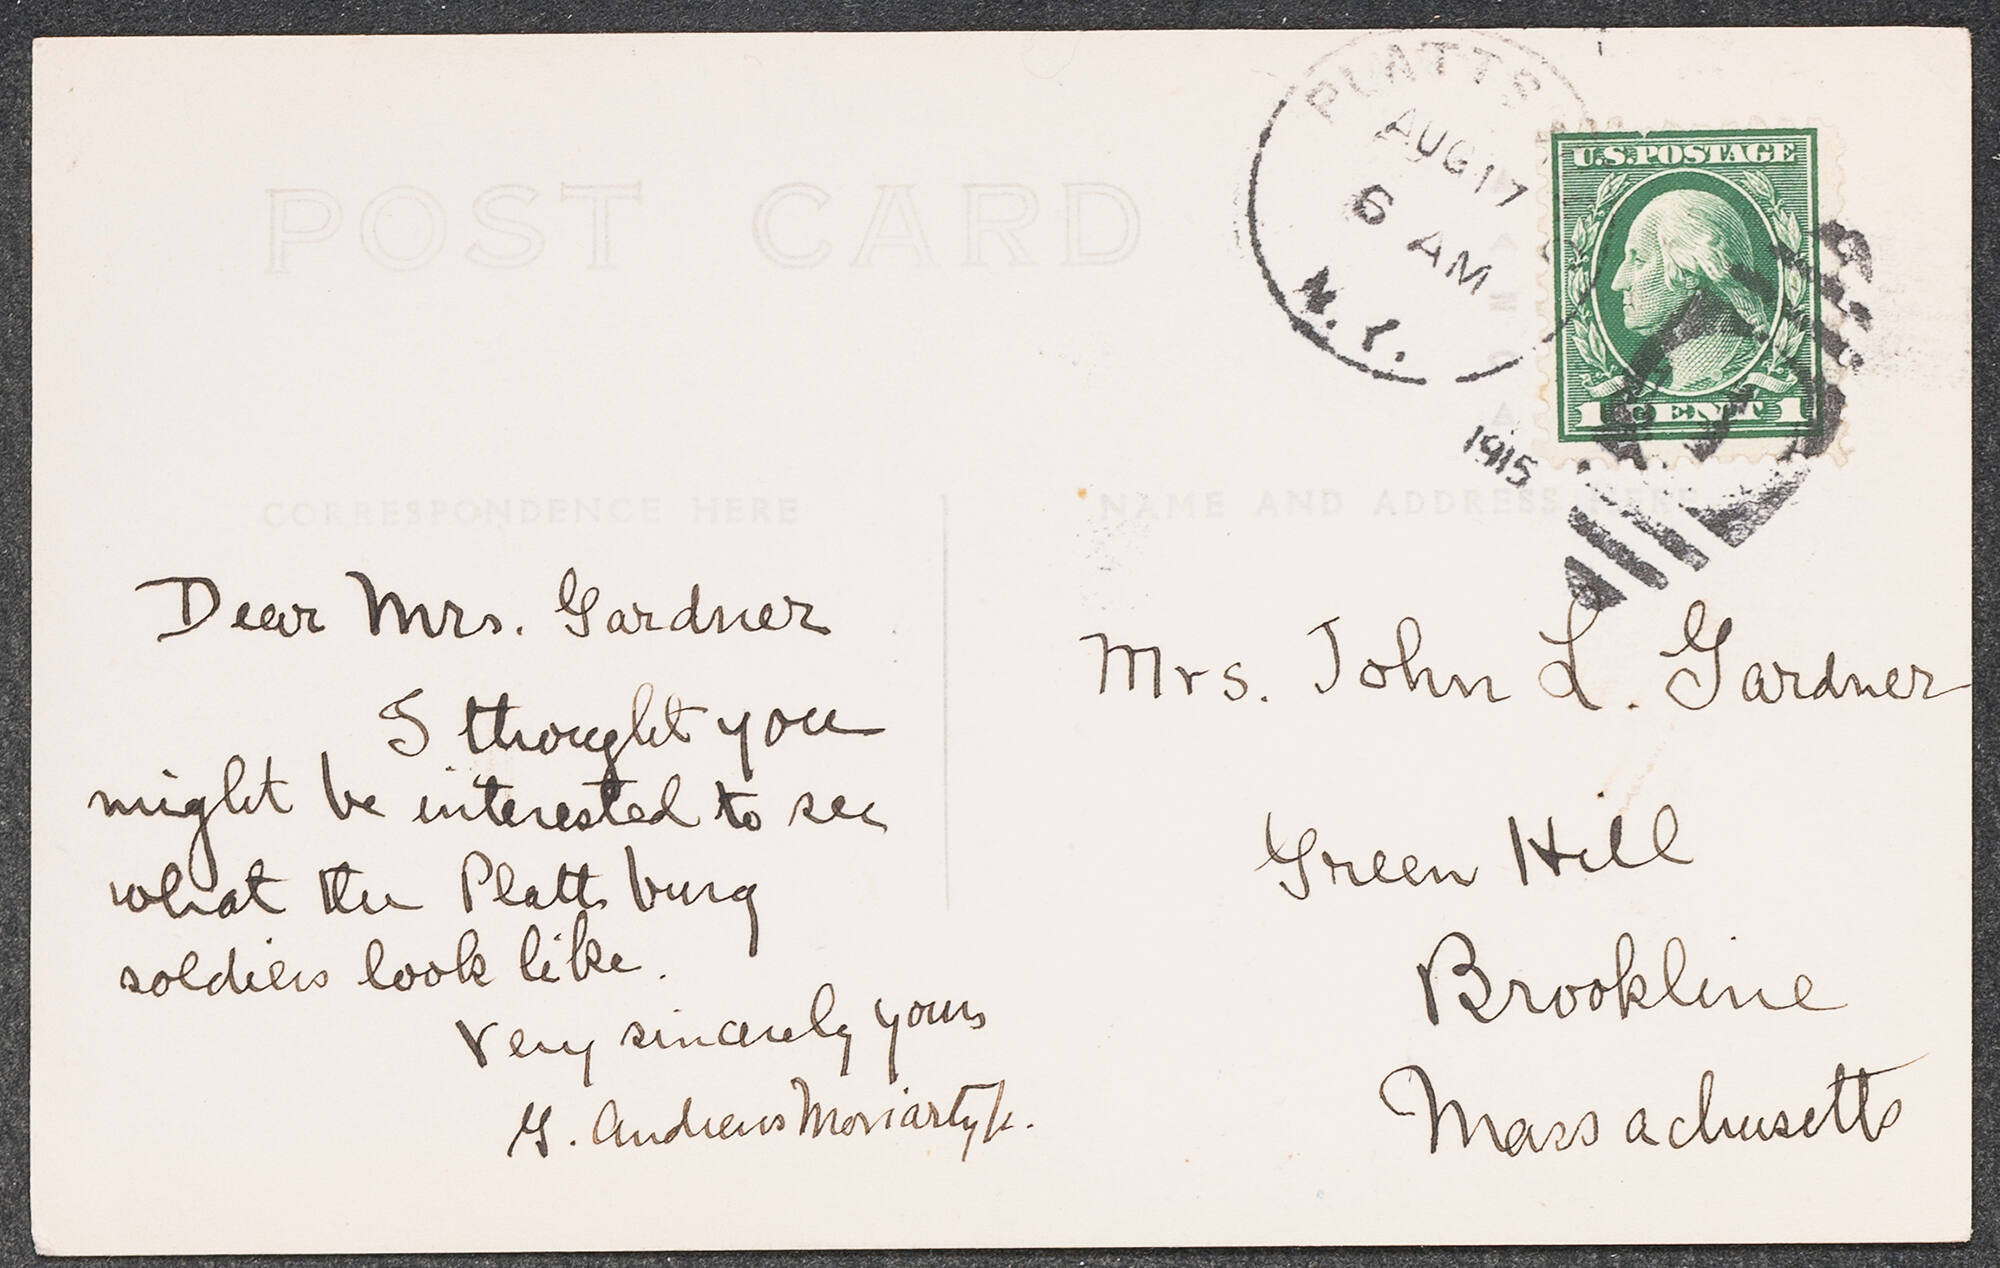 POST CARD
PLATTS
AUG 17
6 AM
N.Y.
1915
U.S. POSTAGE
1 CENT 1
CORRESPONDENCE HERE
NAME AND ADDRESS HERE
Dear Mrs. Gardner
I thought you
might be interested to see
what the Plattsburg
soldiers look like.
Very sincerely yours
G. Andrews Moriarty Jr.
Mrs. John L. Gardner
Green Hill
Brookline
Massachusetts